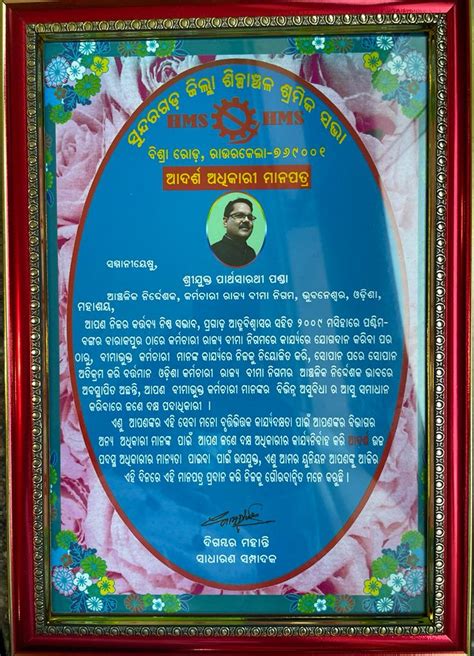 ସୁନ୍ଦରଗଡ଼ ଜିଲ୍ଲା ଶିଳ୍ପାଞ୍ଚଳ ଶ୍ରମିକ ସଭା
HMS HMS
ବିଶ୍ରା ରୋଡ଼, ରାଉରକେଲା-୭୬୯୦୦୧
ଆଦର୍ଶ ଅଧିକାରୀ ମାନପତ୍ର
ସମ୍ମାନୀୟେଷୁ,
ଶ୍ରୀଯୁକ୍ତ ପାର୍ଥସାରଥୀ ପଣ୍ଡା
ଆଞ୍ଚଳିକ ନିର୍ଦ୍ଦେଶକ, କର୍ମଚାରୀ ରାଜ୍ୟ ବୀମା ନିଗମ, ଭୁବନେଶ୍ୱର, ଓଡ଼ିଶା.
ମହାଶୟ,
ଆପଣ ନିଜର କର୍ତ୍ତବ୍ୟ ନିଷ୍ଠ ସଭାବ, ପ୍ରଗାଡ଼ ଆତ୍ମବିଶ୍ୱାସର ସହିତ ୨୦୦୯ ମସିହାରେ ପଶ୍ଚିମ-
ବଙ୍ଗର ବାରାକପୁର ଠାରେ କର୍ମଚାରୀ ରାଜ୍ୟ ବୀମା ନିଗମରେ କାର୍ଯ୍ୟରେ ଯୋଗଦାନ କରିବା ପର
ଠାରୁ, ବୀମାଭୁକ୍ତ କର୍ମଚାରୀ ମାନଙ୍କ କାର୍ଯ୍ୟରେ ନିଜକୁ ନିୟୋଜିତ କରି, ସୋପାନ ପରେ ସୋପାନ
ଅତିକ୍ରମ କରି ବର୍ତ୍ତମାନ ଓଡ଼ିଶା କର୍ମଚାରୀ ରାଜ୍ୟ ବୀମା ନିଗମର ଆଞ୍ଚଳିକ ନିର୍ଦ୍ଦେଶକ ଭାବରେ
ଅବସ୍ଥାପିତ ଅଛନ୍ତି, ଆପଣ ବୀମାଭୁକ୍ତ କର୍ମଚାରୀ ମାନଙ୍କର ବିଭିନ୍ନ ଅସୁବିଧା ର ଆସୁ ସମାଧାନ
କରିବାରେ ଜଣେ ଦକ୍ଷ ପଦାଧିକାରୀ ।
ଏଣୁ ଆପଣଙ୍କର ଏହି ସେବା ମନୋବୃତ୍ତିଭିତ୍ତିକ କାର୍ଯ୍ୟଦକ୍ଷତା ପାଇଁ ଆପଣଙ୍କର ବିଭାଗର
ଅନ୍ୟ ଅଧିକାରୀ ମାନଙ୍କ ପାଇଁ ଆପଣ ଜଣେ ଦକ୍ଷ ଅଧିକାରୀର କାର୍ଯ୍ୟନିର୍ବାହ କରି ଆଦର୍ଶ ଉଚ୍ଚ
ପଦସ୍ଥ ଅଧିକାରୀର ମାନ୍ୟତା ପାଇବା ପାଇଁ ଉପଯୁକ୍ତ, ଏଣୁ ଆମର ୟୁନିୟନ ଆପଣଙ୍କୁ ଆଜିର
ଏହି ଦିନରେ ଏହି ମାନପତ୍ର ପ୍ରଦାନ କରି ନିଜକୁ ଗୌରବାନ୍ୱିତ ମନେ କରୁଛି ।
ଦିଗମ୍ବର ମହାନ୍ତି
ସାଧାରଣ ସମ୍ପାଦକ